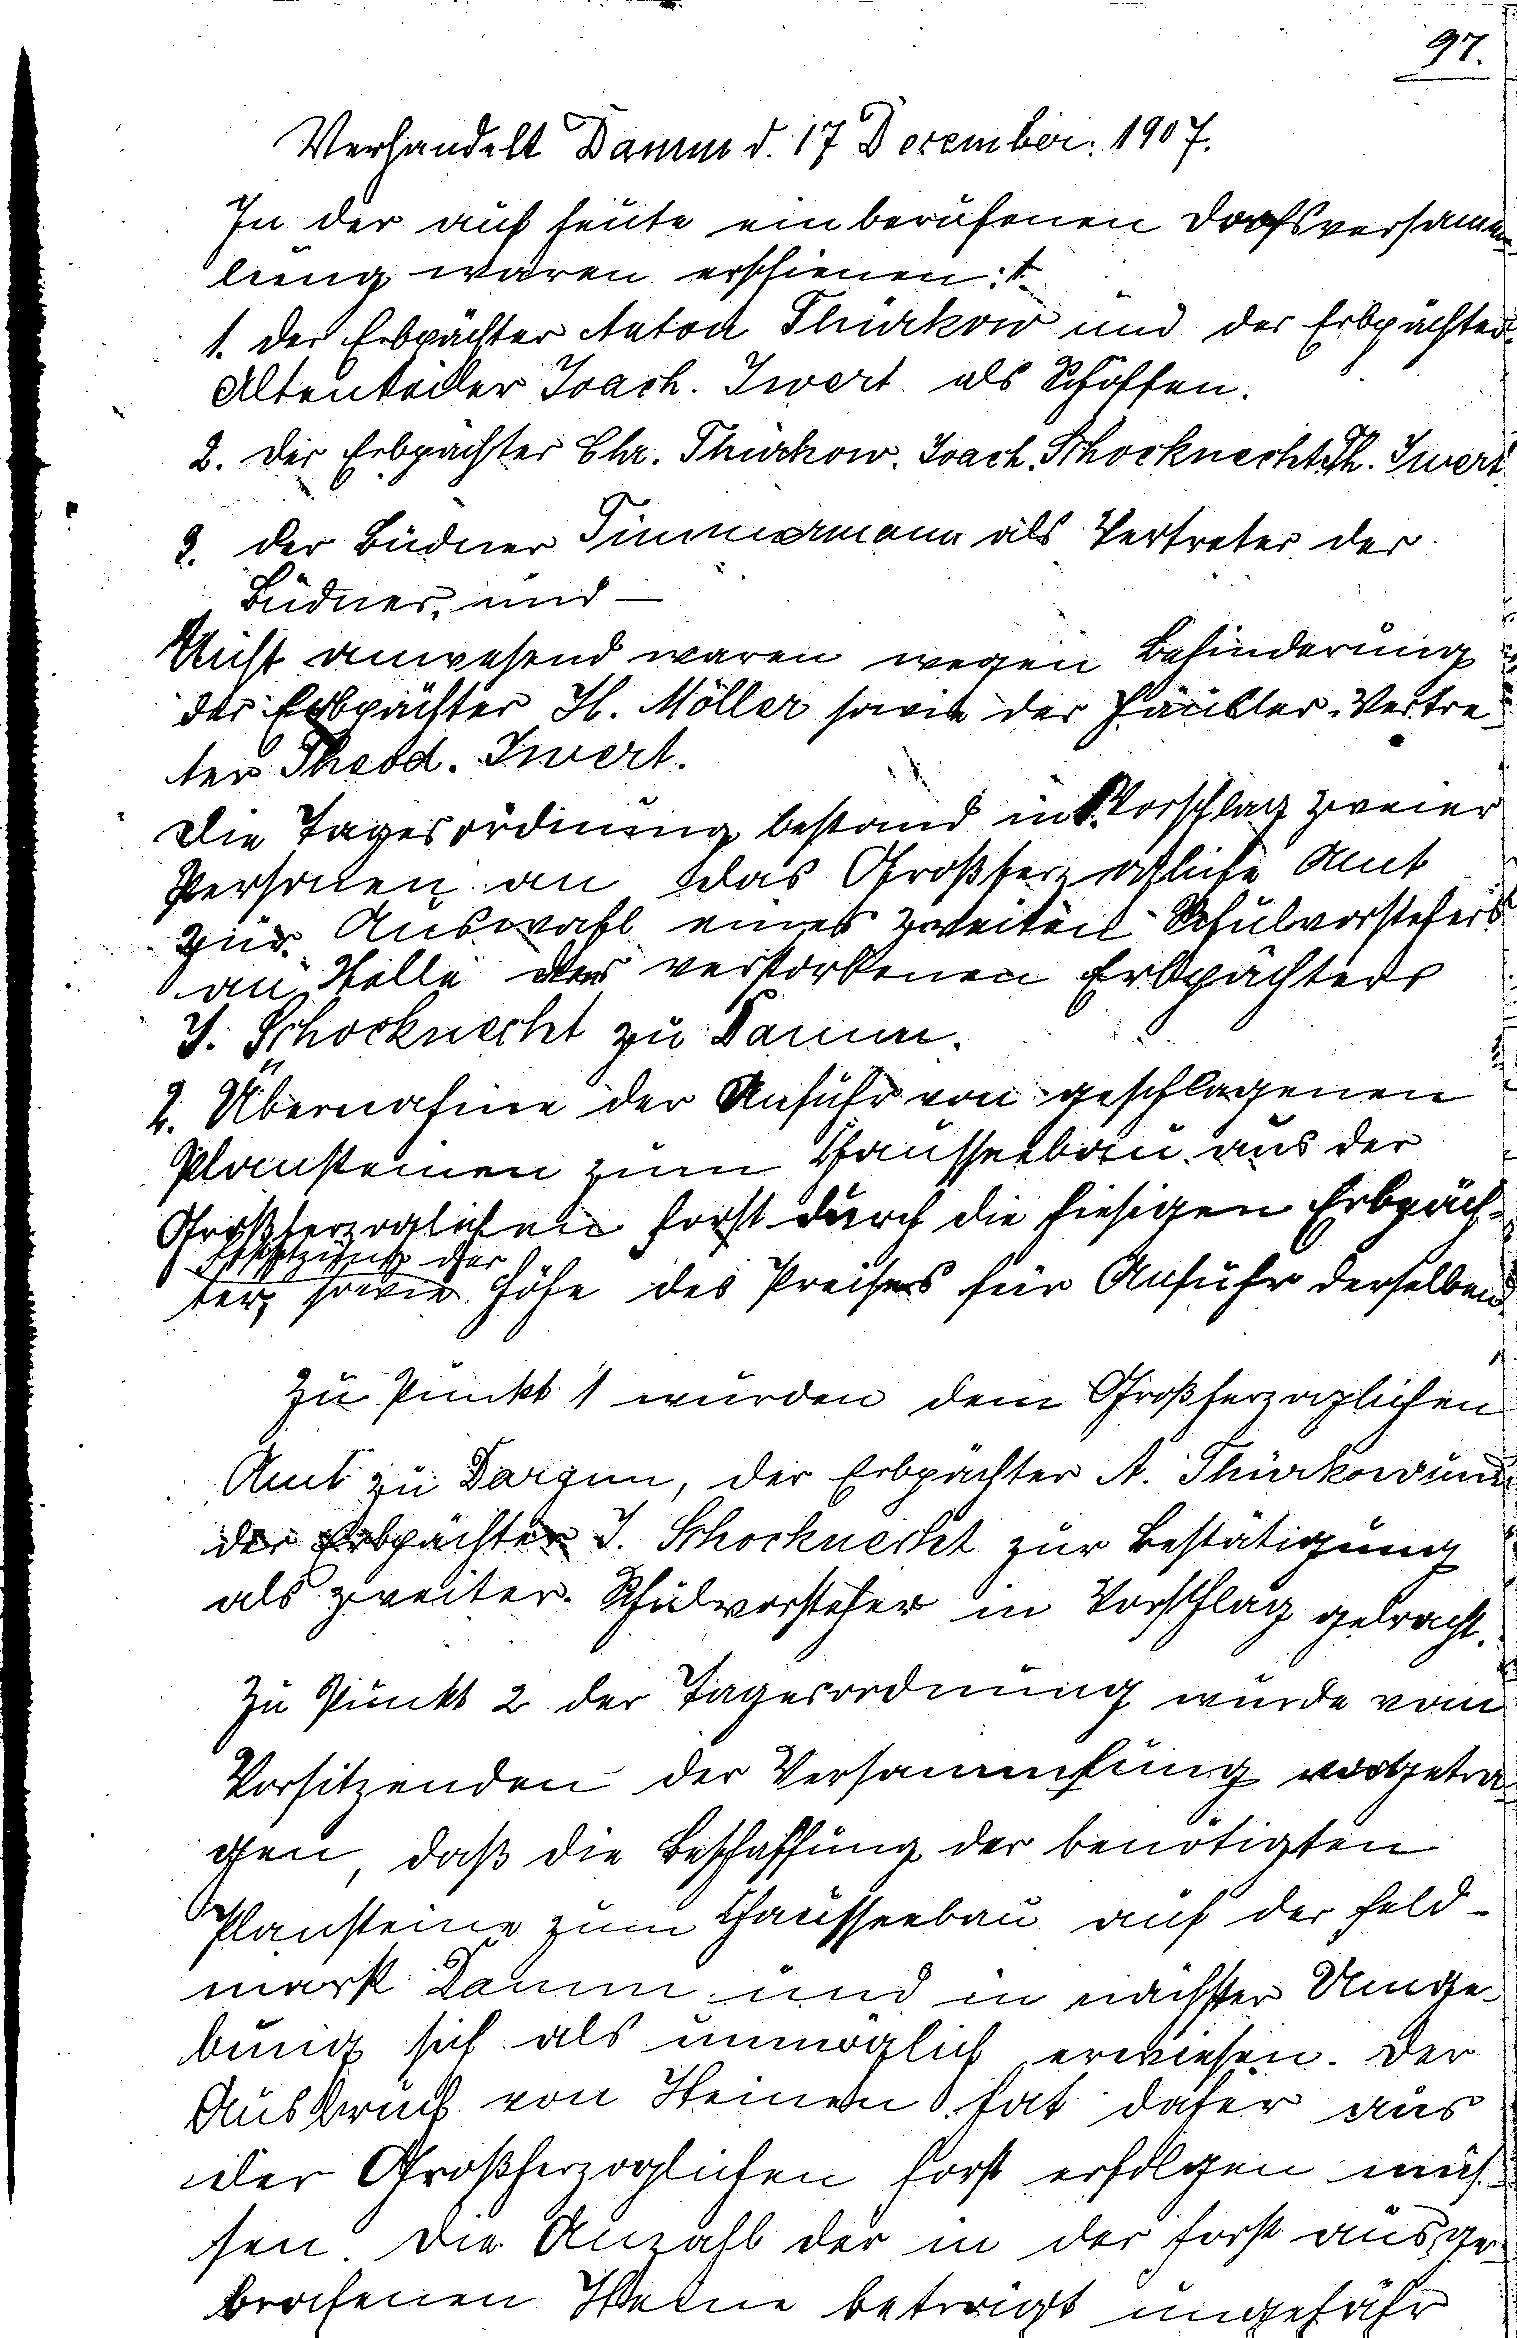 97.
Verhandelt Damm d. 17 Dezember. 1907.
In der auf heute einberufenen Dorfsversamm-
lung waren erschienen:
1. der Erbpächter Anton Thürkow und der Erbpächter-
Altenteiler Joach. Iwert als Schöffen.
2. der Erbpächter Chr. Thürkow. Joach. Schocknecht Th. Iwert.
3. der Büdner Timmermann als Vertreter der
Büdner, und —
Nicht anwesend waren wegen Behinderung
der Erbpächter H. Möller sowie der Häusler-Vertre-
ter Theod. Iwert.
Die Tagesordnung bestand in 1. Vorschlag zweier
Personen an das Großherzogliche Amt
zur Auswahl eines zweiten Schulvorstehers
an Stelle des verstorbenen Erbpächters
J. Schocknecht zu Damm.
2. Übernahme der Anfuhr von geschlagenen
Plansteinen zum Chausseebau aus der
Großherzoglichen Forst durch die hiesigen Erbpäch-
Festsetzung der
ter, sowie Höhe des Preises für Anfuhr derselben.
Zu Punkt 1 wurden dem Großherzoglichen
Amt zu Dargun, der Erbpächter A. Thürkow und
der Erbpächter J. Schocknecht zur Bestätigung
als zweiter Schulvorsteher in Vorschlag gebracht.
Zu Punkt 2 der Tagesordnung wurde vom
Vorsitzenden der Versammlung vorgetra-
gen, daß die Beschaffung der benötigten
Plansteine zum Chausseebau auf der Feld-
mark Damm und in nächster Umge-
bung sich als unmöglich erwiesen. Der
Ausbruch von Steinen hat daher aus
der Großherzoglichen Forst erfolgen müs-
sen. Die Anzahl der in der Forst ausge-
brochenen Steine beträgt ungefähr